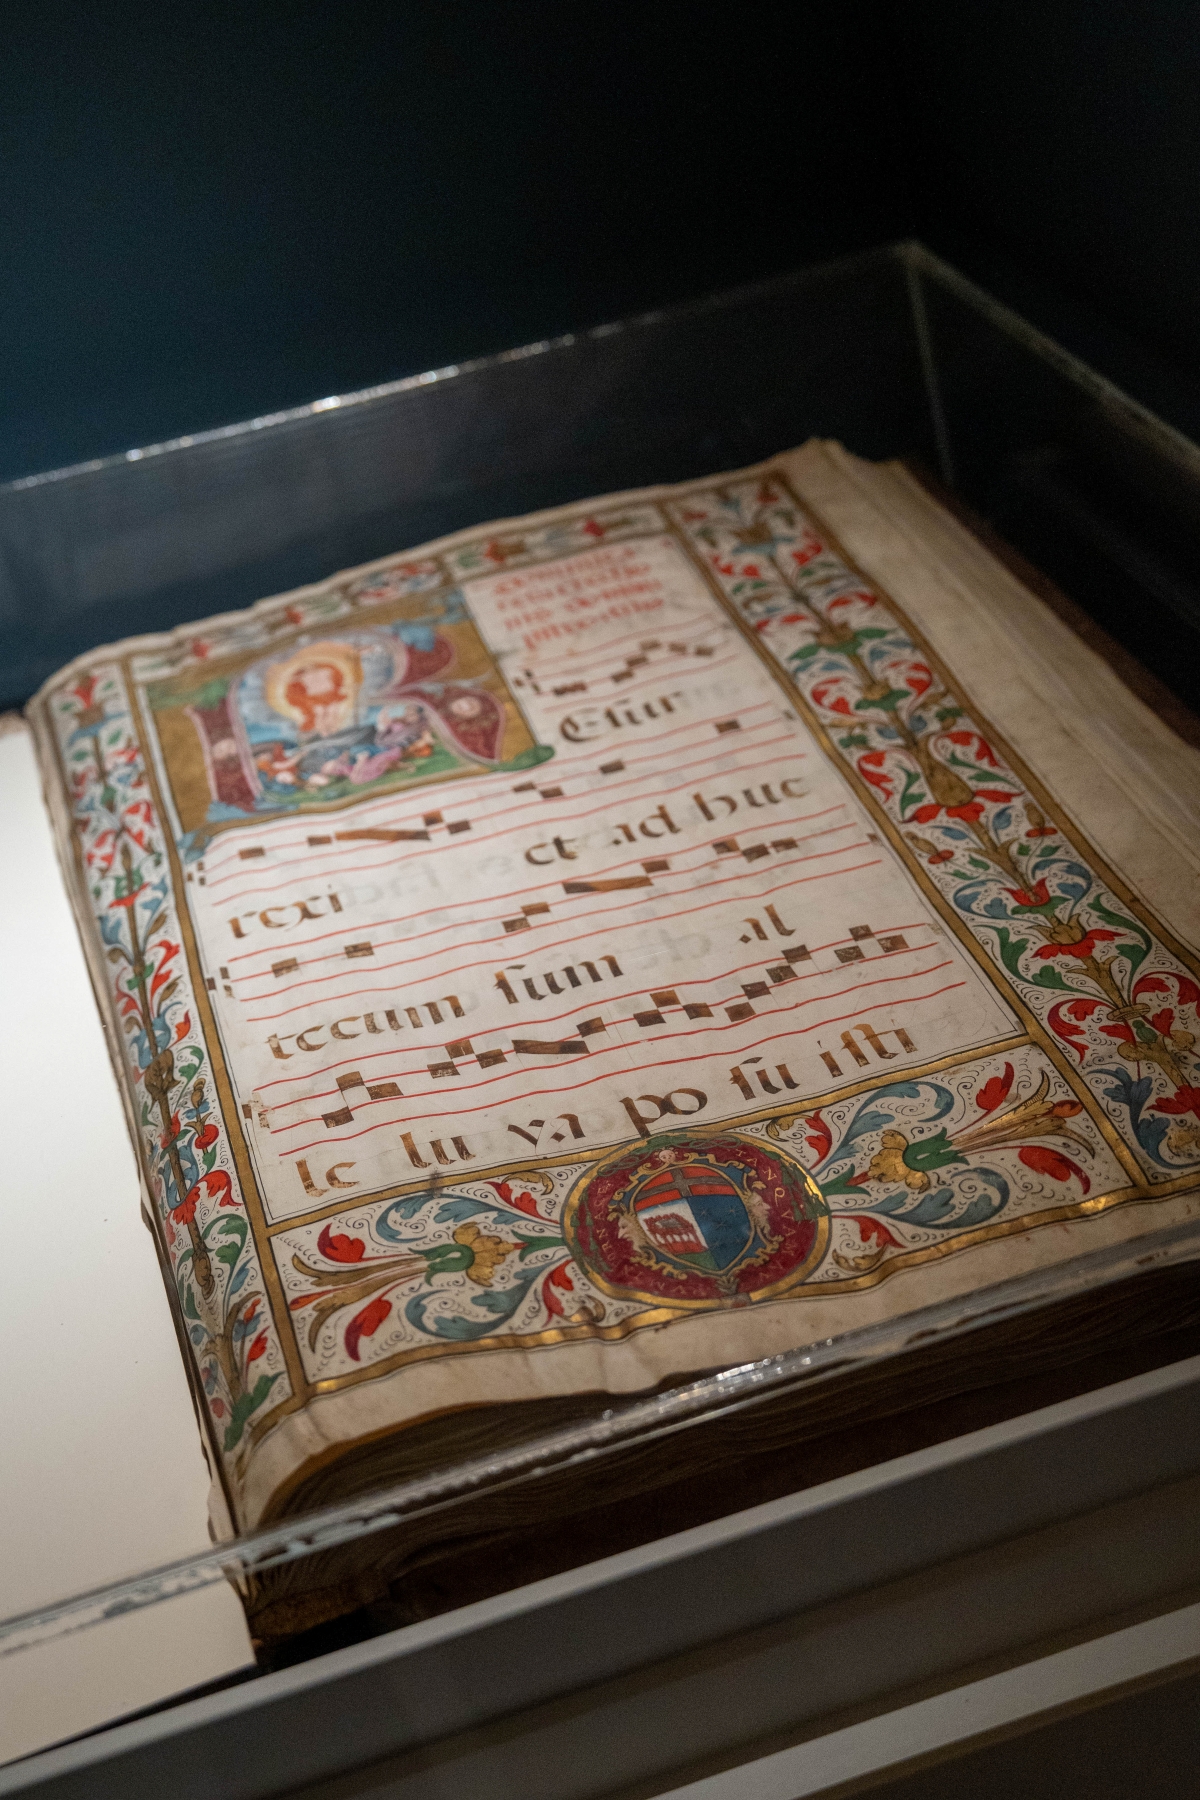 REsur
rexi et ad huc
tecum sum al
le lu ya po su isti
TANQVAM